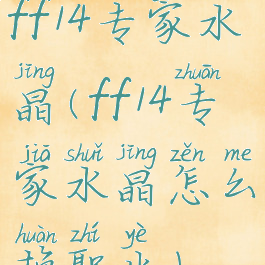 ff14专家水
jīng zhuān
晶(ff14专
jiā shuǐ jīng zěn me
家水晶怎么
huàn zhí yè
换职业)